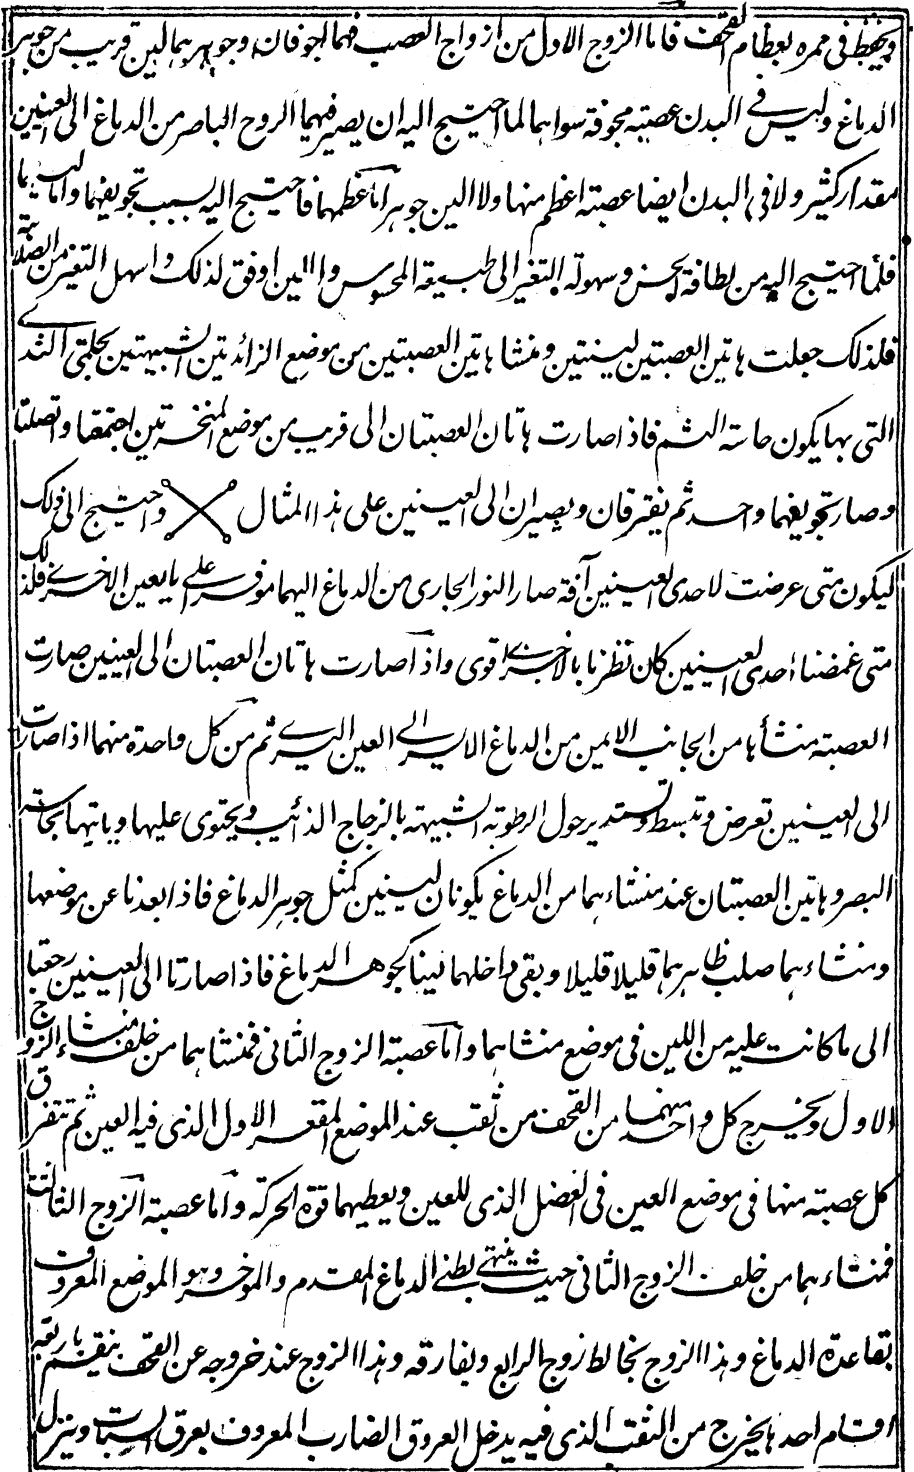 ويحفظ في ممره بعظام القحف فاما الزوج الاول من ازواج العصب فهما اجوفان وجوهرهما لين قريب من جوهر
الدماغ وليس في البدن عصبته مجوفة سواهما لما احتيج اليه ان يصير فيهما الروح الباصر من الدماغ الى العينين
مقدار كثير ولا في البدن ايضا عصبته اعظم منها ولا الين جوهرا اما عظمهما فاحتيج اليه بسبب تجويفهما واما لينهما
فلما احتيج اليه من لطافة الحس وسهولة التغير الى طبيعة المحسوس والالين اوفق لذلك واسهل التغير من الصلابة
فلذلك جعلت هاتين العصبتين لينتين ومنشا هاتين العصبتين من موضع الزائدتين الشبيهتين بحلمتي الثدي
التي بها يكون حاسة الشم فاذا صارت هاتان العصبتان الى قريب من موضع المنخرين اجتمعتا واتصلتا
وصار تجويفهما واحد ثم يفترقان ويصيران الى العينين على هذا المثال واحتيج الى ذلك
ليكون متى عرضت لاحدى العينين آفة صار النور الجاري من الدماغ اليهما موفرا على العين الاخرى فلذلك
متى غمضنا احدى العينين كان نظرنا بالاخرى اقوى واذا صارت هاتان العصبتان الى العينين صارت
العصبة منشأها من الجانب الايمن من الدماغ الايسر الى العين اليسرى ثم من كل واحدة منهما اذا صارت
الى العينين تعرض وتبسط وتستدير حول الرطوبة الشبيهة بالزجاج الذائب ويحتوى عليها وياتيها بحاسة
البصر وهاتين العصبتان عند منشاءهما من الدماغ يكونان لينين كمثل جوهر الدماغ فاذا بعدنا عن موضعها
ومنشاءهما صلب ظاهرهما قليلا قليلا وبقى داخلهما لينا كجوهر الدماغ فاذا صارتا الى العينين رجعتا
الى ما كانت عليه من اللين في موضع منشاهما واما عصبة الزوج الثاني فمنشاهما من خلف منشاء الزوج
الاول ويخرج كل واحد منهما من القحف من ثقب عند الموضع المقعر الاول الذى فيه العين ثم تتفرق
كل عصبته منها في موضع العين في العضل الذى للعين ويعطيهما قوة الحركة واما عصبة الزوج الثالث
فمنشاءهما من خلف الزوج الثاني حيث ينتهى بطنى الدماغ المقدم والموخر وهو الموضع المعروف
بقاعدة الدماغ وهذا الزوج يخالط زوج الرابع ويفارقه وهذا الزوج عند خروجه عن القحف ينقسم باربعة
اقسام احدها يخرج من الثقب الذى فيه يدخل العروق الضارب المعروف بعرق السبات وينزل